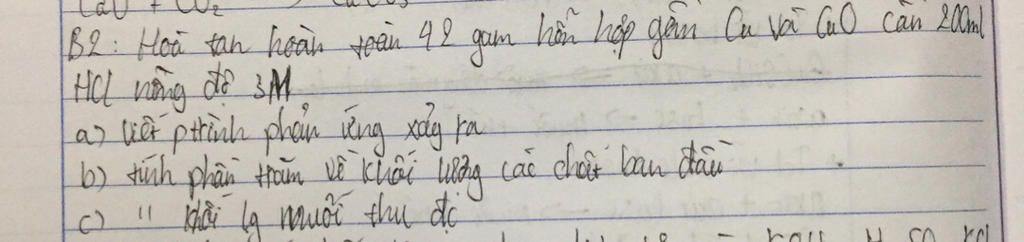 CaO + CO₂
B2: Hoà tan hoàn toàn 42 gam hỗn hợp gồm Cu và CuO cần 200ml
HCl nồng độ 3M
a) viết ptrình phản ứng xảy ra
b) tính phần trăm về khối lượng các chất ban đầu
c) " khối lg muối thu đc